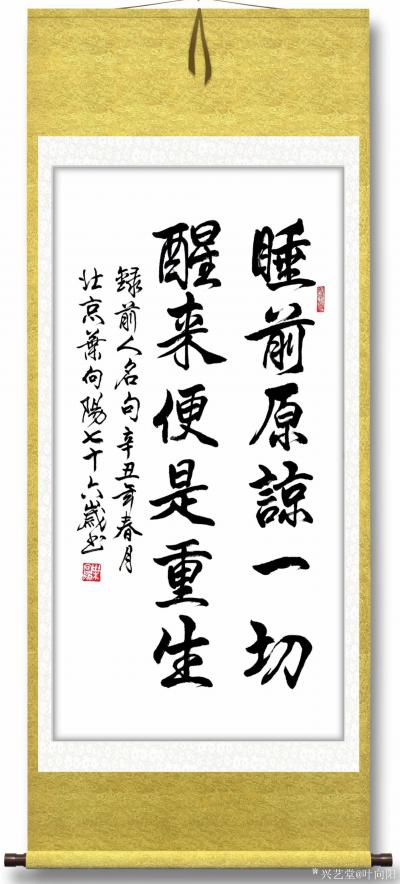 睡前原諒一切
醒来便是重生
録前人名句辛丑年春月
北京葉向陽七十六歲书
兴艺堂@叶向阳